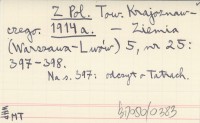 Z Pol. Tow. Krajoznaw-
czego. 1914 a. — Ziemia
(Warszawa-Lwów) 5, nr 25:
397-398.
Na s. 397: odczyt o Tatrach.
MT